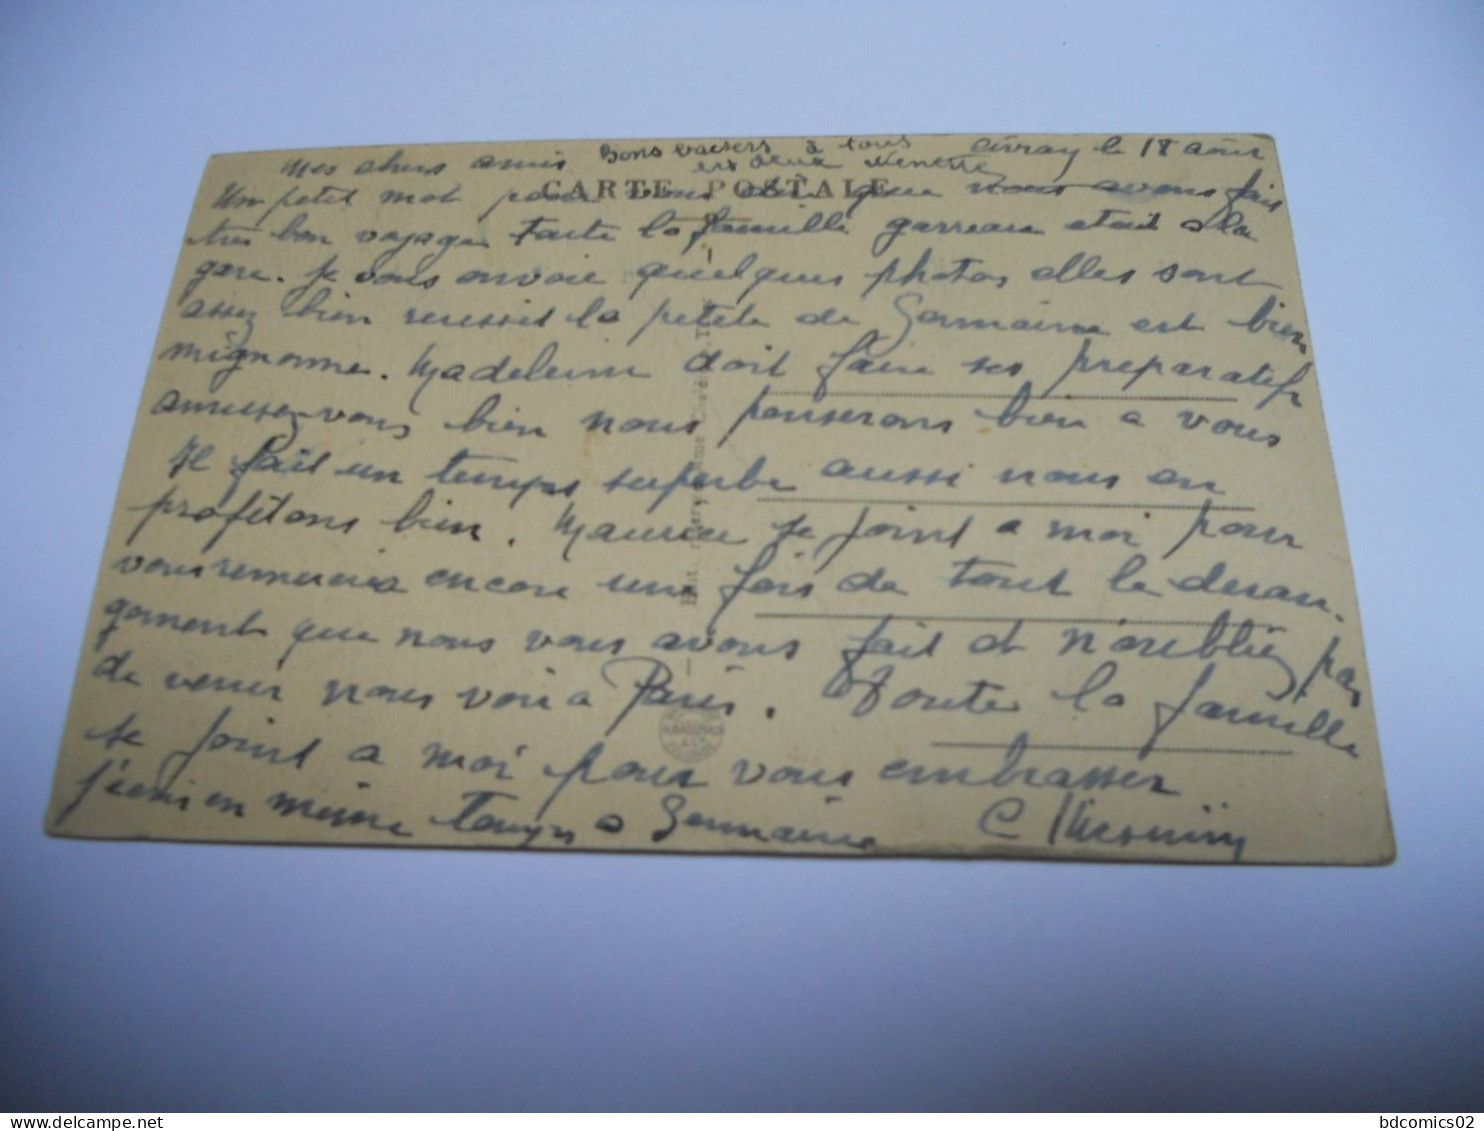 Civray le 18 août
Bons baisers à tous
Mes chers amis
CARTE POSTALE
Un petit mot pour vous dire que nous avons fait
tres bon voyage toute la famille garreau etait a la
gare. Je vous envoie quelques photos elles sont
assez bien reussit la petite de Germaine est bien
mignonne. Madeleine doit faire ses preparatifs
amusez-vous bien nous penserons bien a vous
Il fait un temps superbe aussi nous en
profitons bien. Maurice se joint a moi pour
vous remercier encore une fois de tout le deran-
gement que nous vous avons fait et n'oubliez pas
de venir nous voir a Paris. Toute la famille
se joint a moi pour vous embrasser
j'ecris en même temps a Germaine C
bdcomics02